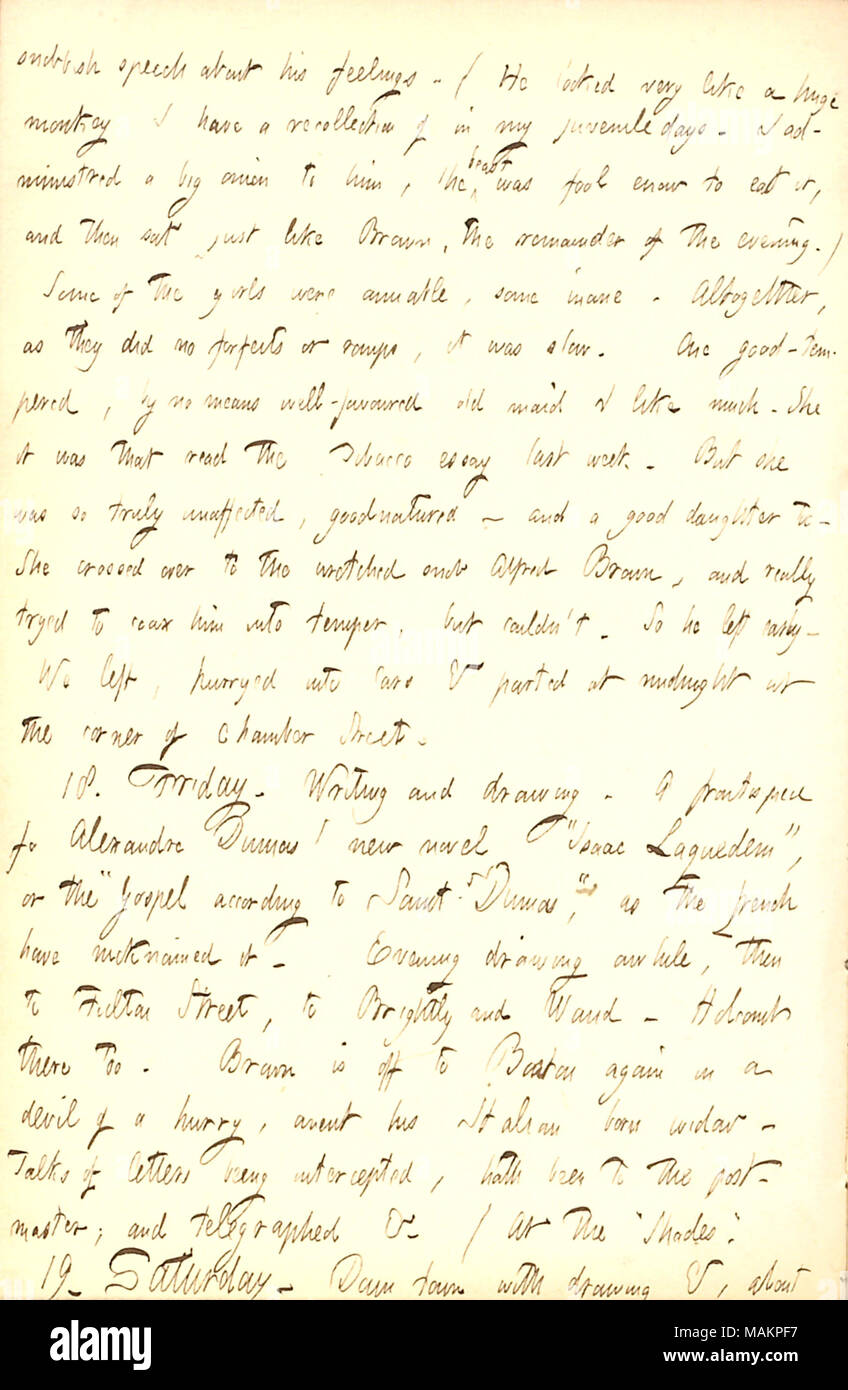 snobbish speech about his feelings. ( He looked very like a huge
monkey I have a recollection of in my juvenile days. I ad-
ministred a big onion to him, the beast was fool enow to eat it,
and then sat just like Brown, the remainder of the evening. )
Some of the girls were amiable, some inane. Altogether,
as they did no forfeits or romps, it was slow. One good-tem-
pered, by no means well-favoured old maid I like much. She
it was that read the Tobacco essay last week. But she
was so truly unaffected, goodnatured — and a good daughter to.
She crossed over to the wretched snob Alfred Brown, and really
tryed to coax him into temper, but couldn't. So he left early.
We left, hurryed into cars & parted at midnight at
the corner of Chamber Street.
18. Friday. Writing and drawing. A frontispiece
fo Alexandre Dumas' new novel "Isaac Laquedem",
or the "Gospel according to Saint Dumas," as the french
have nicknamed it. Evening drawing awhile, then
to Fulton Street, to Brightly and Waud. Holcomb
there too. Brown is off to Boston again in a
devil of a hurry, anent his Italian born widow.
Talks of letters being intercepted, hath been to the post-
master, and telegraphed &c ( At the "Shades".
19. Saturday. Down town with drawing &, about
alamy
a
Image ID: MAKPF7
www.alamy.com